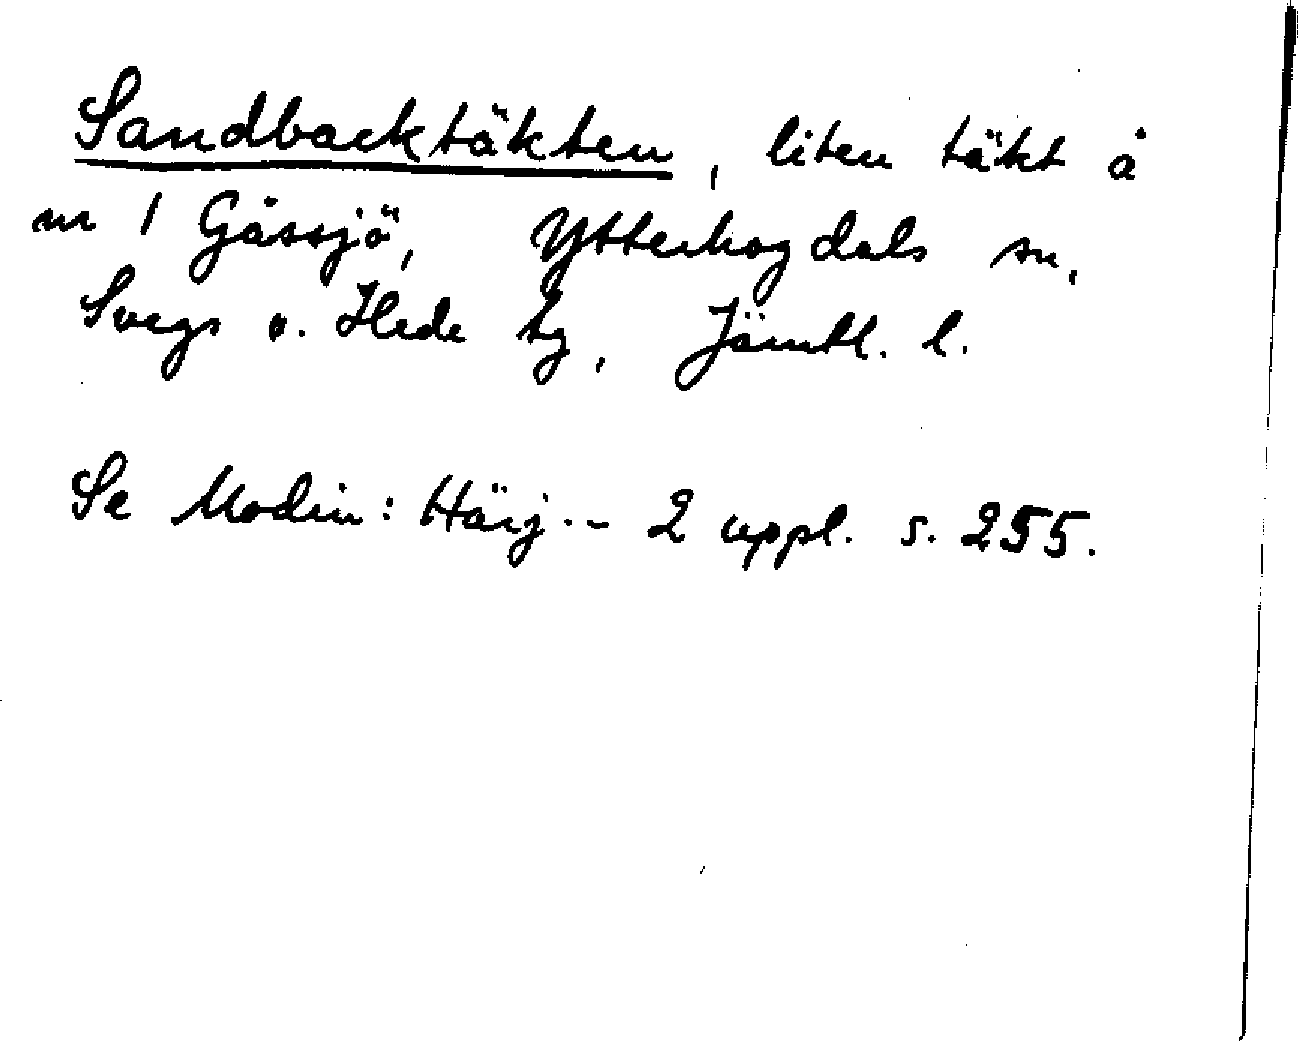 Sandbacktäkten, liten täkt å
nr 1 Gåssjö, Ytterhogdals sn,
Svegs o. Hede tg, Jämtl. l.
Se Modin: Härj.- 2 uppl. s. 255.